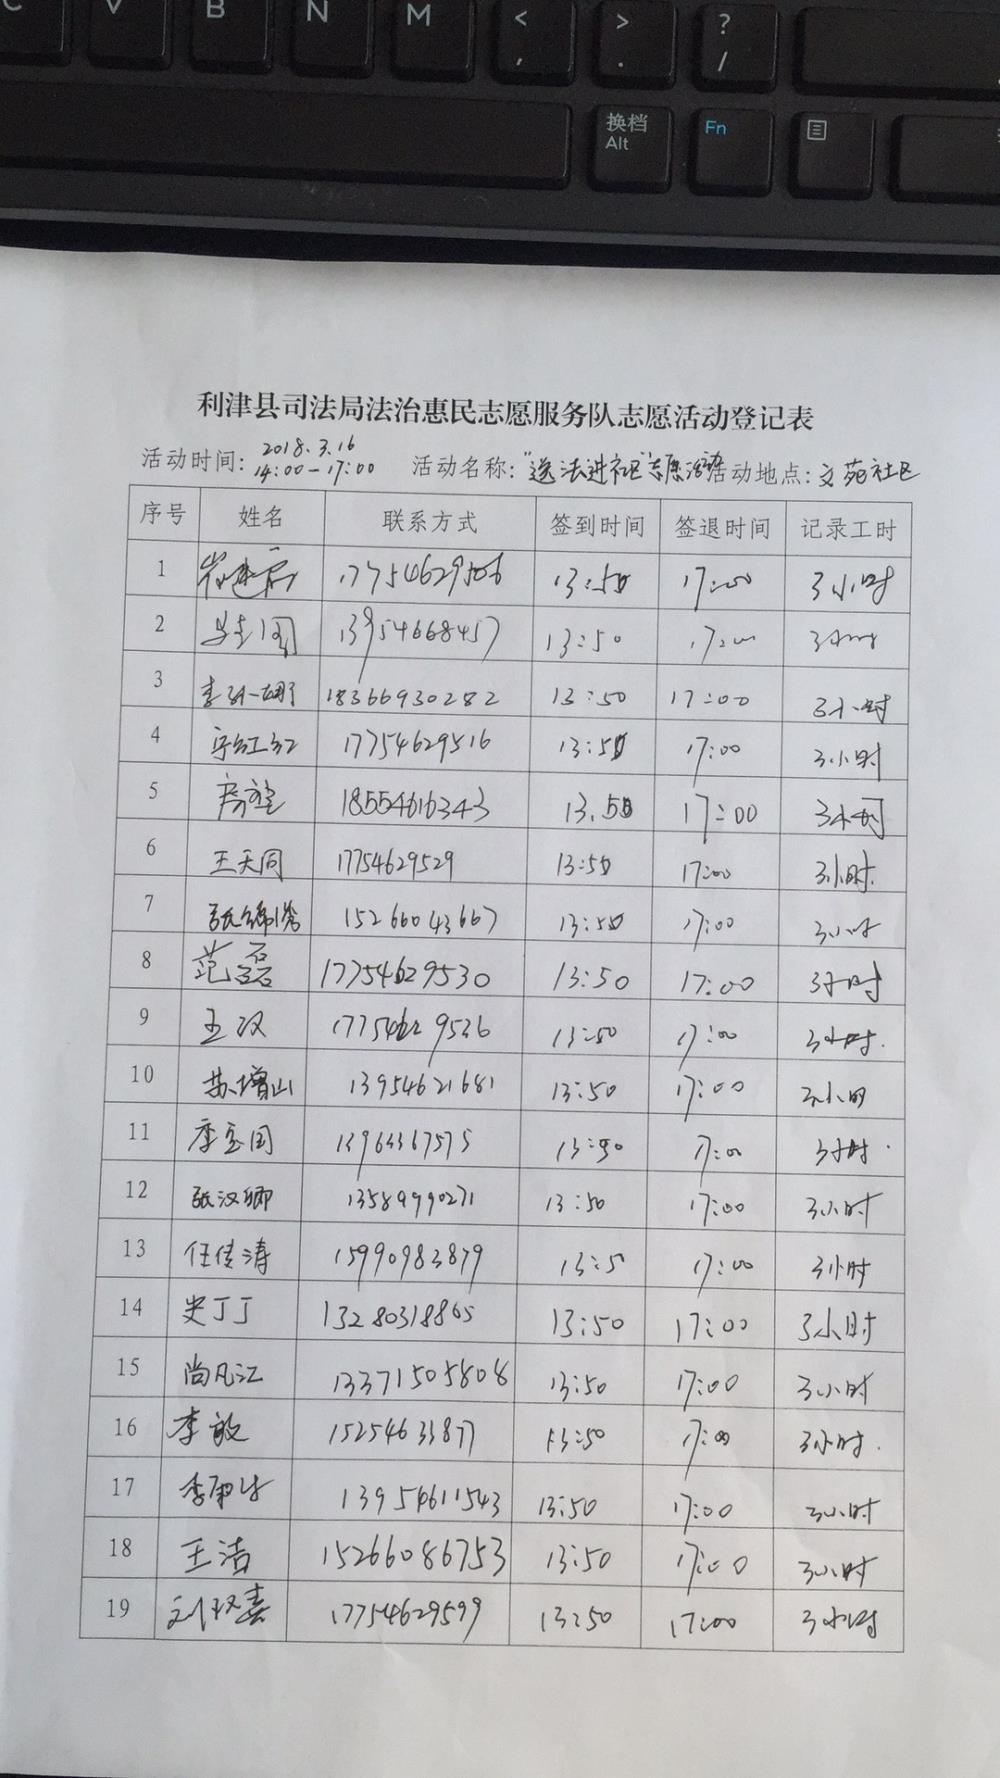 C V B N M < ,
> .
? /
换档 Alt Fn
利津县司法局法治惠民志愿服务队志愿活动登记表
活动时间: 2018.3.16 14:00-17:00 活动名称:"送法进社区"志愿活动 活动地点:文苑社区
序号 姓名 联系方式 签到时间 签退时间 记录工时
1 17754629506 13:50 17:00 3小时
2 13954668457 13:50 17:00 3小时
3 18366930282 13:50 17:00 3小时
4 宁红红 17754629516 13:50 17:00 3小时
5 18554616343 13.50 17:00 3小时
6 王天同 17754629529 13:50 17:00 3小时.
7 15266043667 13:50 17:00 3小时
8 范磊 17754629530 13:50 17:00 3小时
9 王汉 17754629536 13:50 17:00 3小时.
10 苏增山 13954621681 13:50 17:00 3小时
11 李宝国 13963367575 13:50 17:00 3小时.
12 张汉卿 13589990271 13:50 17:00 3小时
13 任传涛 15990983879 13:5 17:00 3小时
14 史丁丁 13280318865 13:50 17:00 3小时
15 尚凡江 13371505808 13:50 17:00 3小时
16 李敏 15254633877 13:50 17:00 3小时.
17 13954611543 13:50 17:00 3小时
18 王洁 15266086753 13:50 17:00 3小时
19 17754629599 13:50 17:00 3小时